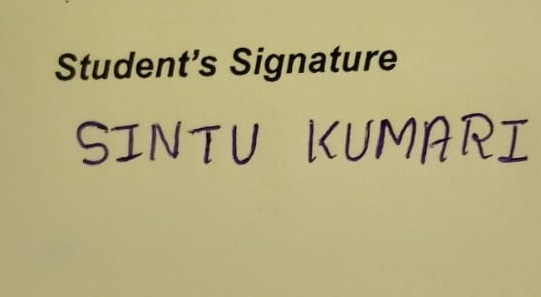 Student's Signature
SINTU KUMARI